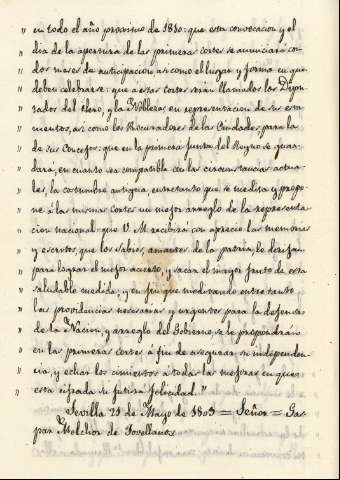 " en todo el año proximo de 1810: que esta convocacion y el
" dia de la apertura de las primeras cortes se anunciará con
" dos meses de anticipacion asi como el lugar y forma en que
" deben celebrarse: que a estas cortes serán llamados los Dipu-
" tados del Clero, y la Nobleza en representacion de sus esta-
" mentos, asi como los Procuradores de las Ciudades, para la
" de sus Concejos: que en la primera Junta del Reyno se guar-
" dará, en cuanto sea compatible con las circunstancias actua-
" les, la costumbre antigua, entretanto que se medita y propo-
" ne á las mismas Cortes un mejor arreglo de la representa-
" cion nacional: que V. M. recibirá con aprecio las memorias
" y escritos, que los sabios, amantes de la patria, le dirijan
" para lograr el mejor acierto, y sacar el mayor fruto de esta
" saludable medida; y en fin que meditando entre tanto
" las providencias necesarias y urgentes para la defensa
" de la Nacion, y arreglo del Gobierno, se le propondrán
" en las primeras cortes á fin de asegurar su independen-
" cia, y echar los cimientos á todas las mejoras en que
" esta cifrada su futura felicidad."
Sevilla 21 de Mayo de 1809 = Señor = Gas-
par Melchor de Jovellanos